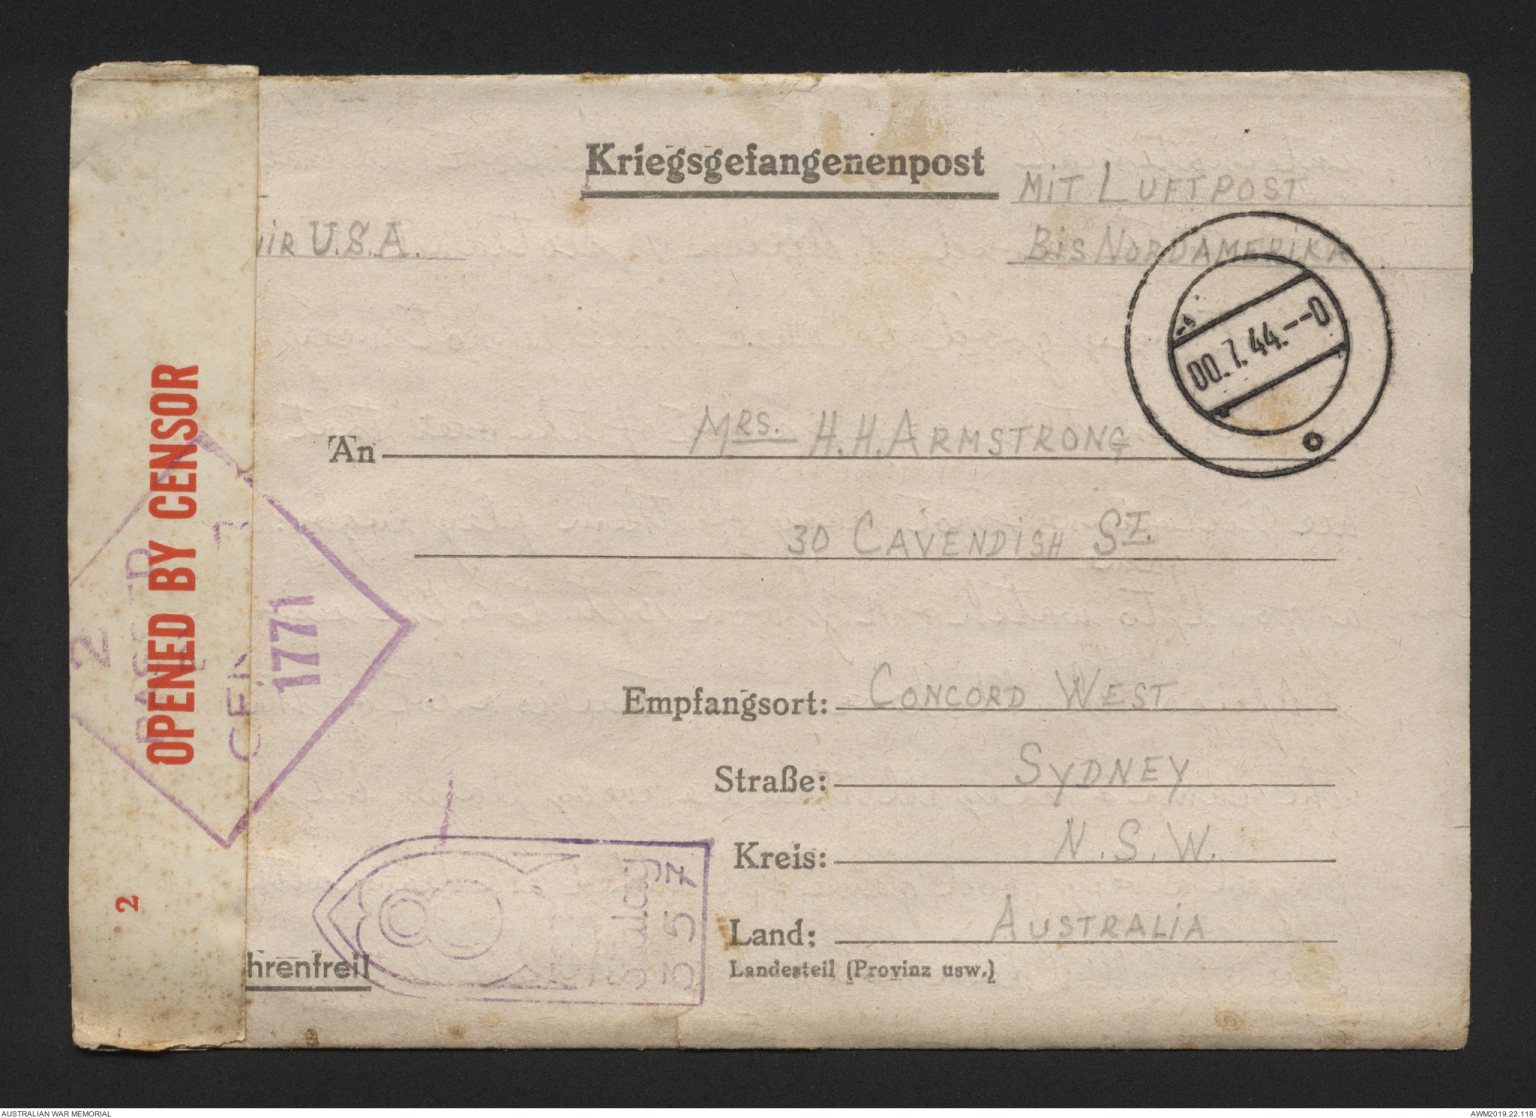 Kriegsgefangenenpost
MIT LUFTPOST
BIS NORDAMERIKA
AIR U.S.A.
00.7.44.--0
An MRS. H.H. ARMSTRONG
30 CAVENDISH ST.
Empfangsort: CONCORD WEST
Straße: SYDNEY
Kreis: N.S.W.
Land: AUSTRALIA
Landesteil (Provinz usw.)
hrenfrei!
OPENED BY CENSOR
2
2
PASSED
CEN
1771
Stalag
357
AUSTRALIAN WAR MEMORIAL
AWM2019.22.118